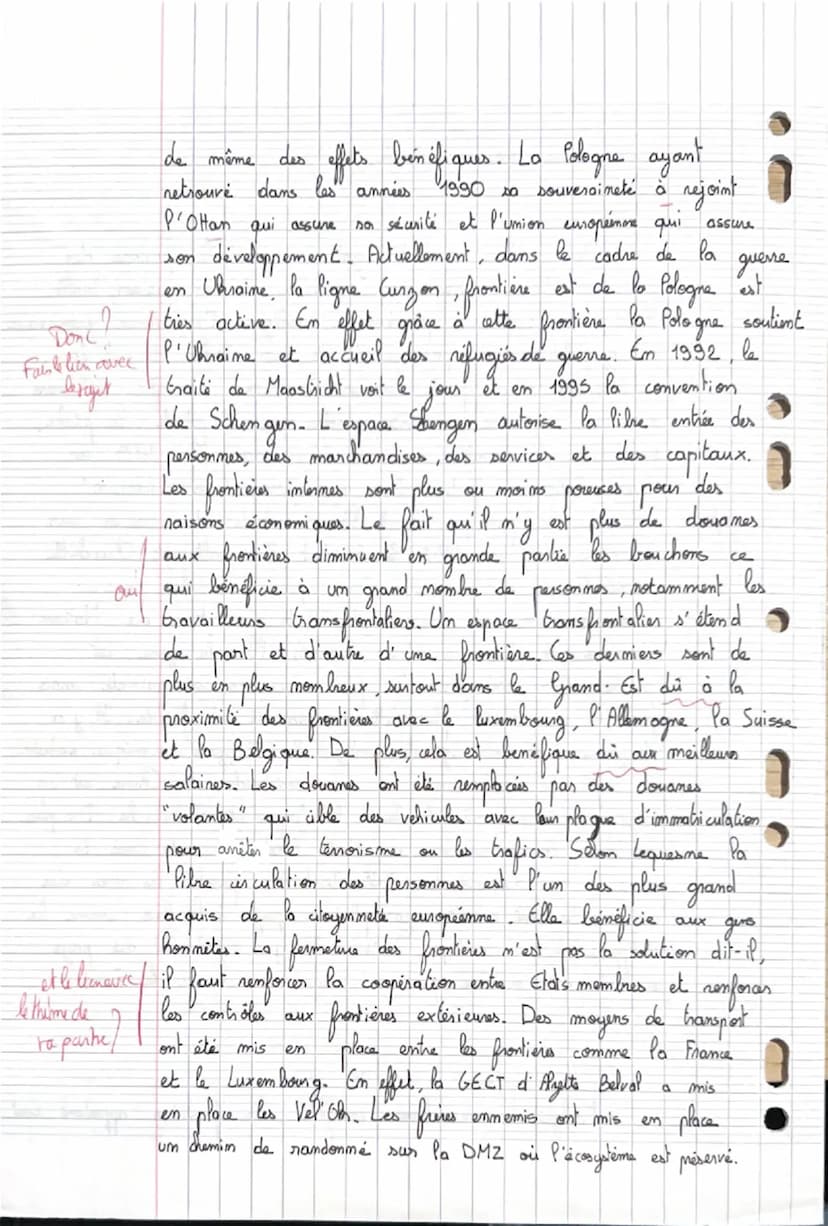 de même des effets bénéfiques. La Pologne ayant
retrouvé dans les années 1990 sa souveraineté à rejoint
l'Ottan qui assure sa sécurité et l'union européenne qui assure
son développement. Actuellement, dans le cadre de la guerre
en Ukraine, la ligne Curzon, frontière est de la Pologne est
très active. En effet grâce à cette frontière la Pologne soutient
Donc?
l'Ukraine et accueil des réfugiés de guerre. En 1992, le
Fais le lien avec
le sujet
traité de Maastricht voit le jour et en 1995 la convention
de Schengen. L'espace Shengen autorise la libre entrée des
personnes, des marchandises, des services et des capitaux.
Les frontières internes sont plus ou moins poreuses pour des
raisons économiques. Le fait qu'il n'y est plus de douanes
aux frontières diminuent en grande partie les bouchons ce
oui
qui bénéficie à un grand nombre de personnes, notamment les
travailleurs transfrontaliers. Un espace transfrontalier s'étend
de part et d'autre d'une frontière. Ces derniers sont de
plus en plus nombreux, surtout dans le Grand-Est dû à la
proximité des frontières avec le Luxembourg, l'Allemagne, la Suisse
et la Belgique. De plus, cela est bénéfique dû aux meilleurs
salaires. Les douanes ont été remplacés par des douanes
"volantes" qui cible des vehicules avec leur plaque d'immatriculation
pour arrêter le terrorisme ou les trafics. Selon Lequesne la
libre circulation des personnes est l'un des plus grand
acquis de la citoyenneté européenne. Elle bénéficie aux gens
honnêtes. La fermeture des frontières n'est pas la solution dit-il,
et le lien avec
le thème de
ta partie?
il faut renforcer la coopération entre Etats membres et renforcer
les contrôles aux frontières extérieures. Des moyens de transport
ont été mis en place entre les frontières comme la France
et le Luxembourg. En effet, la GECT d'Alzette Belval a mis
en place les Vel'Ok. Les frères ennemis ont mis en place
un chemin de randonné sur la DMZ où l'écosystème est préservé.